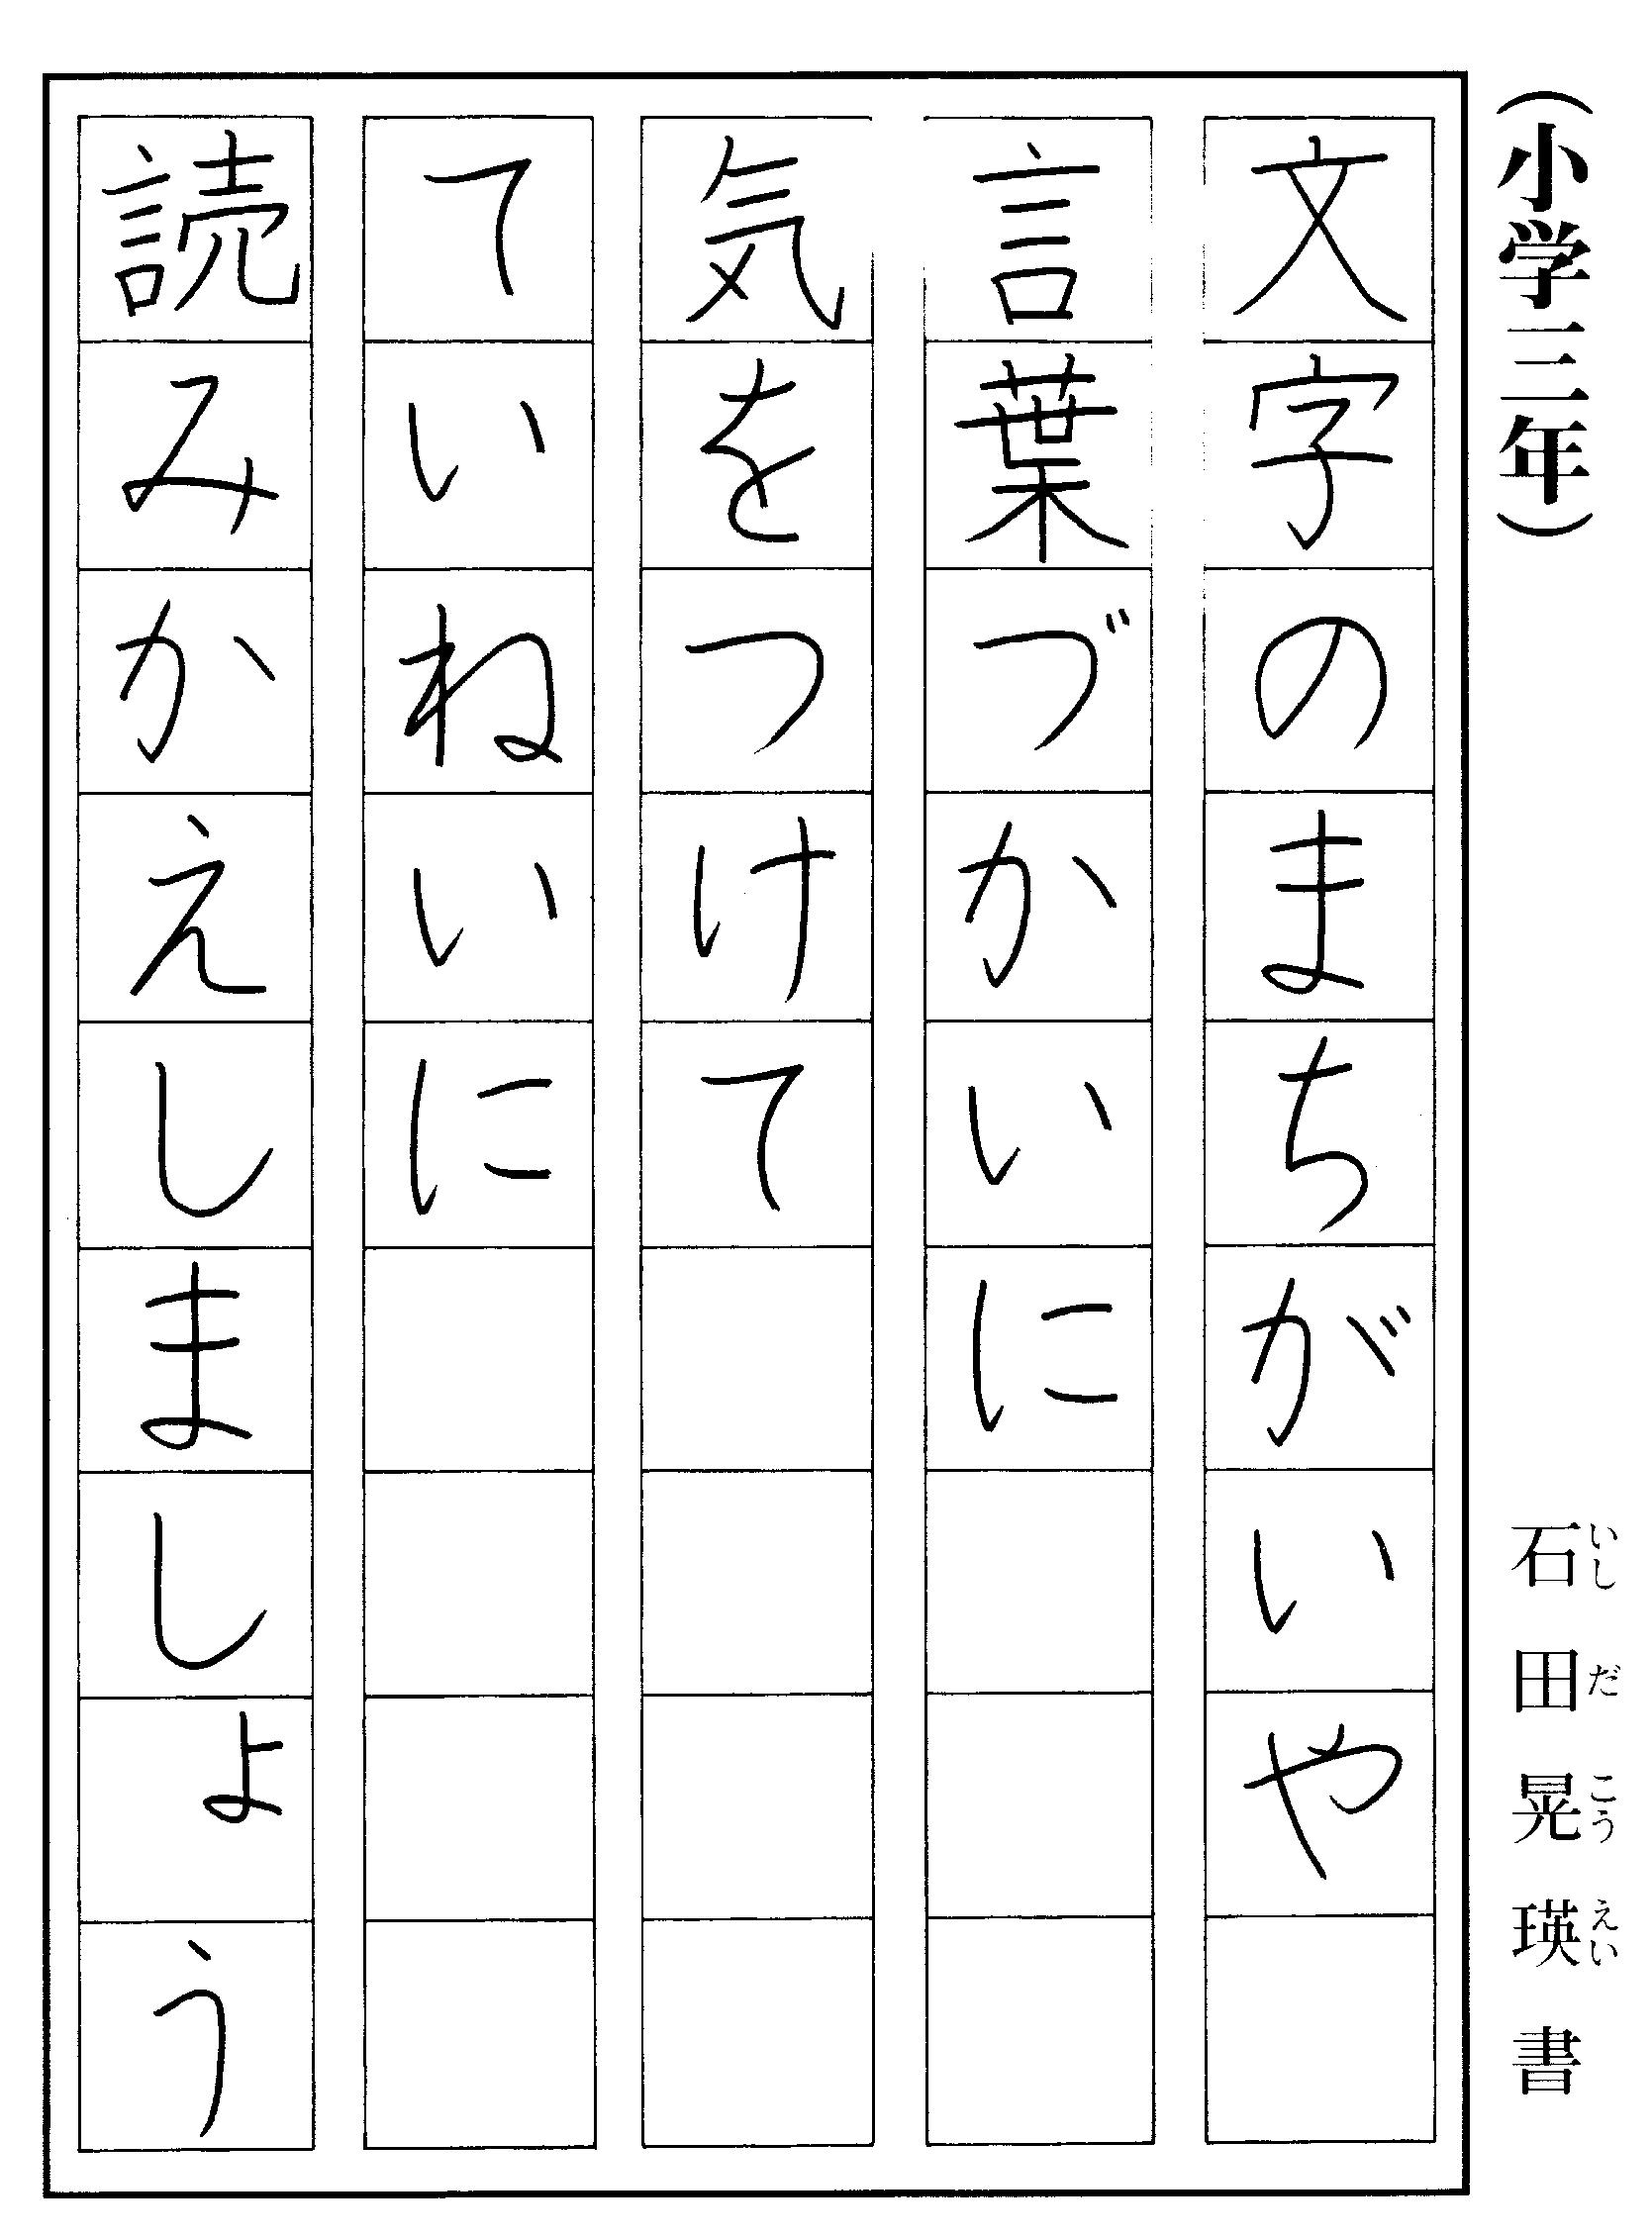 （小学三年）
石田晃瑛書
いしだこうえい
文字のまちがいや
言葉づかいに
気をつけて
ていねいに
読みかえしましょう